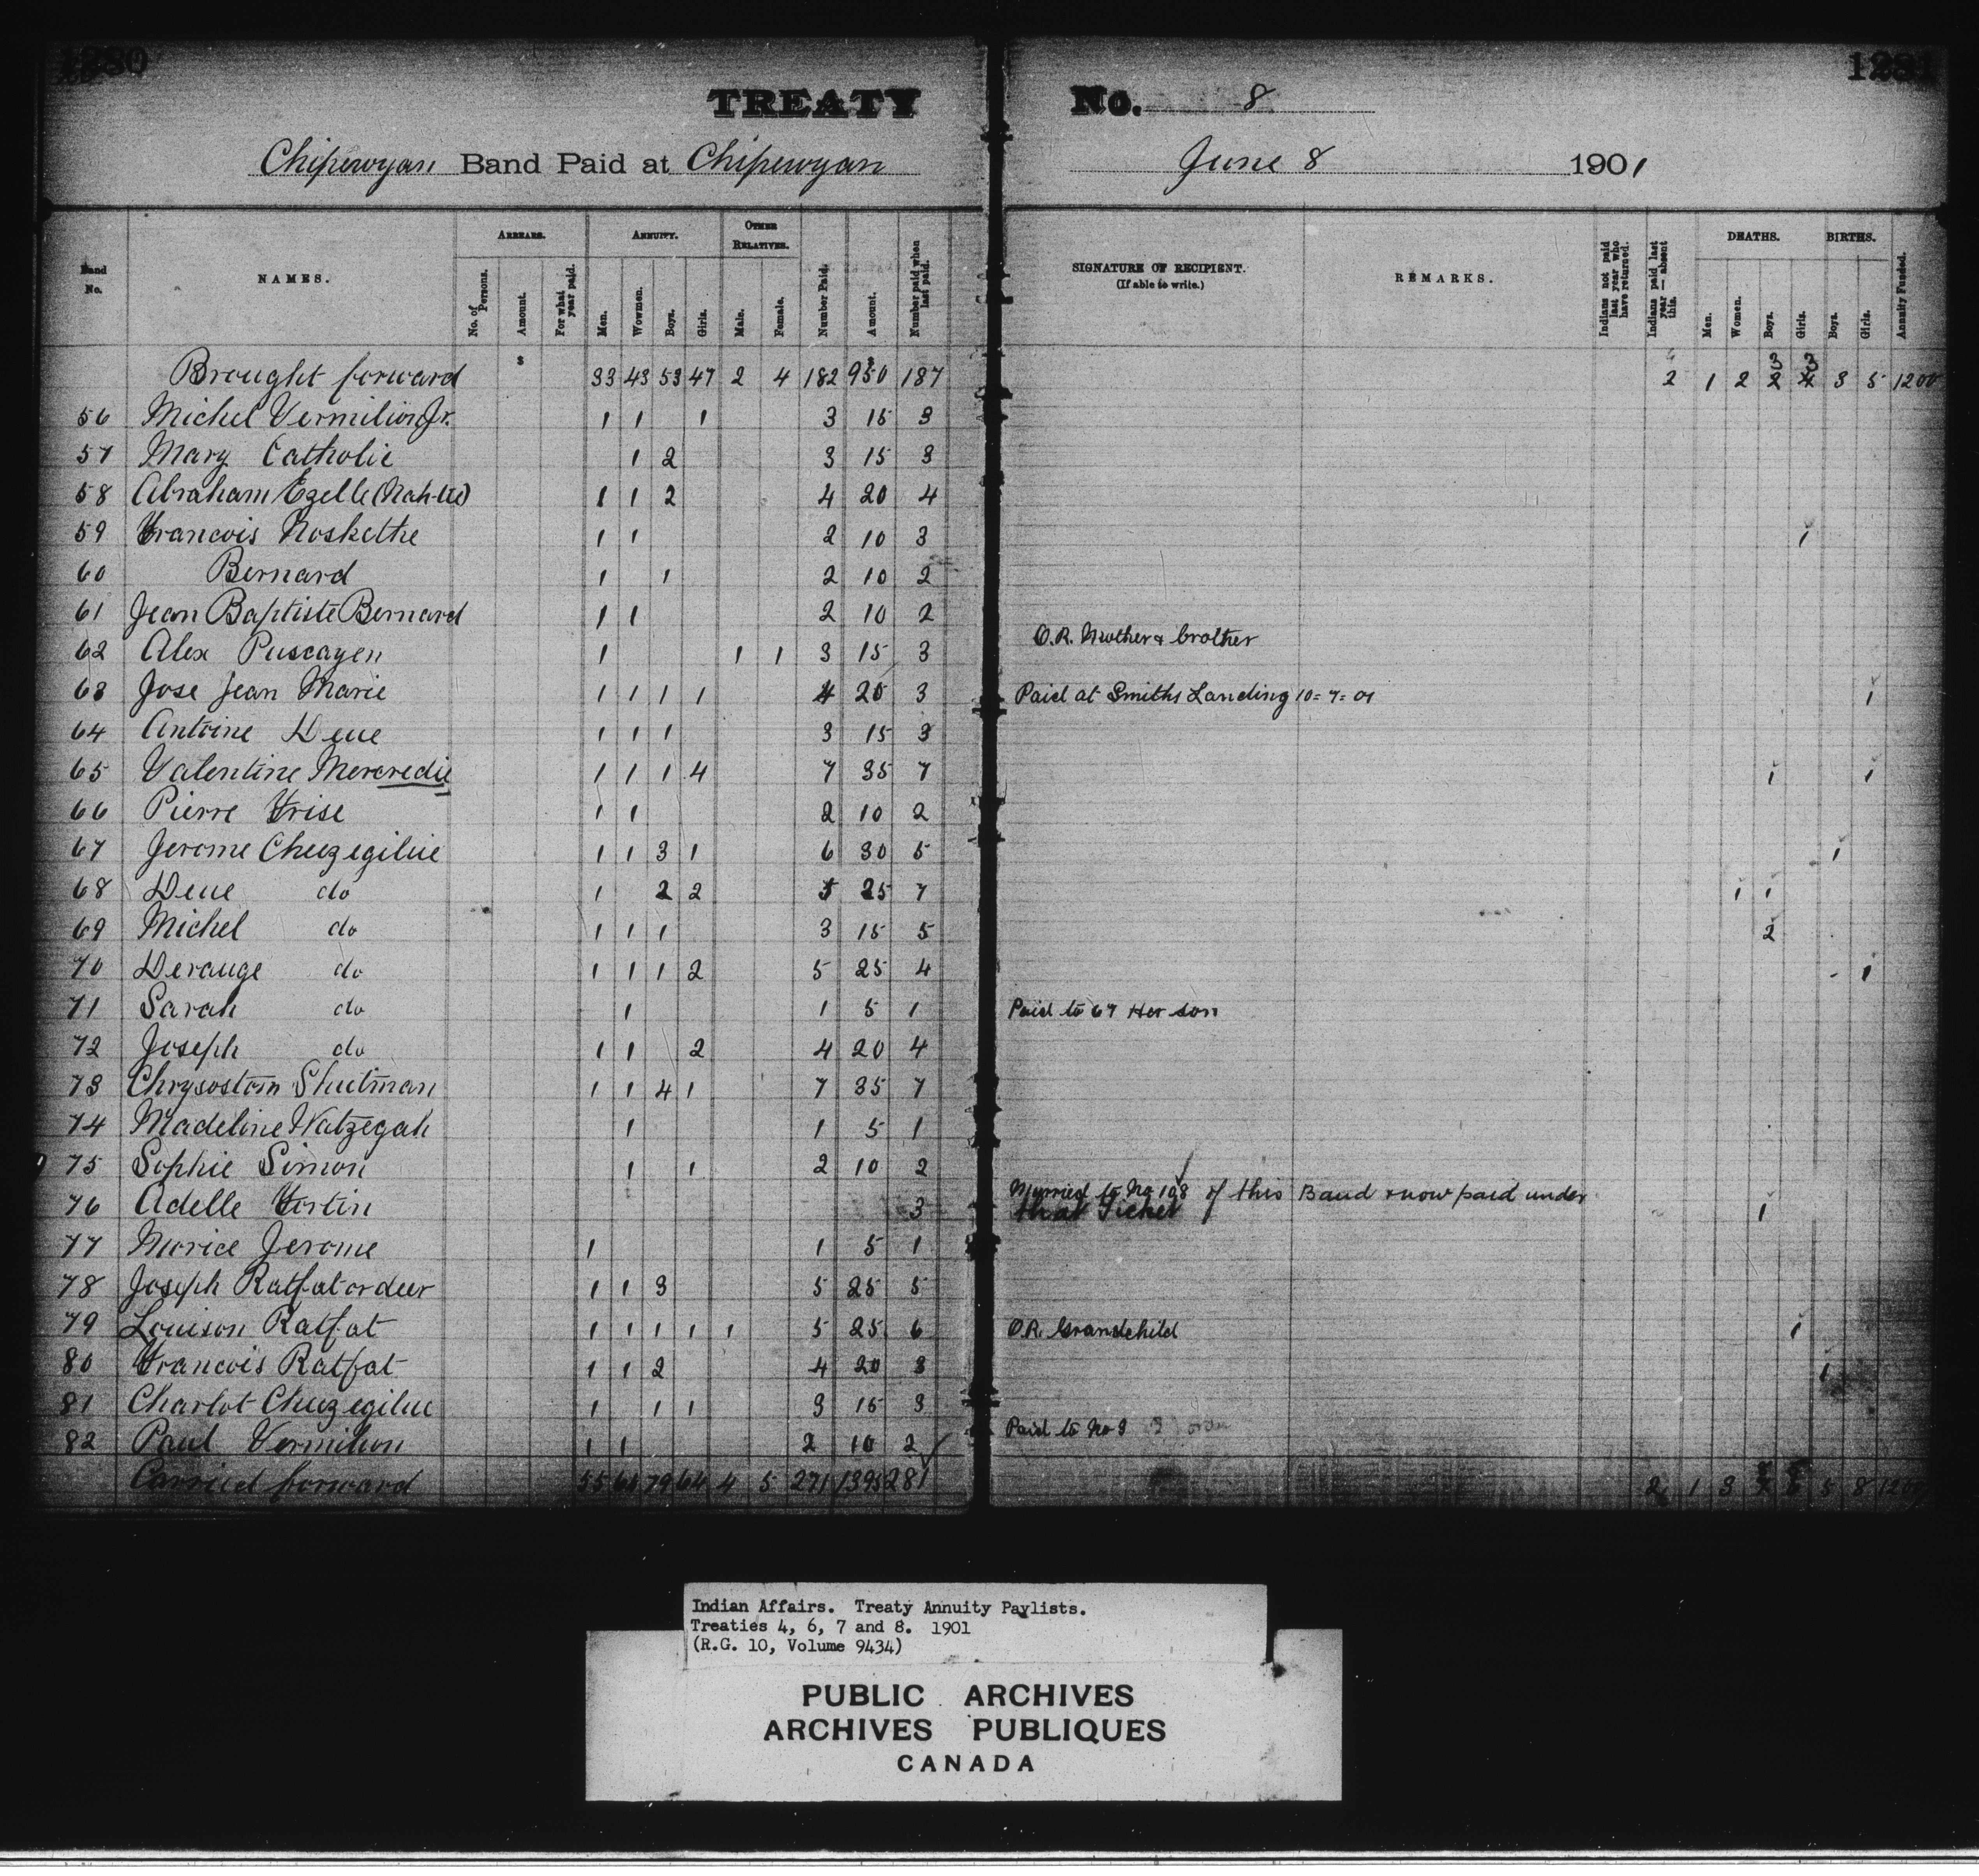 1280
1281
TREATY No. 8
Chipewyan Band Paid at Chipewyan June 8 1901
Band No. NAMES. ARREARS. No. of Persons. Amount. For what year paid. ANNUITY. Men. Women. Boys. Girls. OTHER RELATIVES. Male. Female. Number Paid. Amount. Number paid when last paid. SIGNATURE OF RECIPIENT. (If able to write.) REMARKS. Indians not paid last year who have returned. Indians paid last year — absent this. DEATHS. Men. Women. Boys. Girls. BIRTHS. Boys. Girls. Annuity Funded.
$ $
Brought forward 33 43 53 47 2 4 182 950 187 2 1 2 3 3 3 5 1200
56 Michel Vermilion Jr. 1 1 1 3 15 3
57 Mary Catholic 1 2 3 15 3
58 Abraham Ezelle 1 1 2 4 20 4
59 Francois Noskethe 1 1 2 10 3 1
60 Bernard 1 1 2 10 2
61 Jean Baptiste Bernard 1 1 2 10 2
62 Alex Puscayen 1 1 1 3 15 3 O.R. Mother & brother
63 Jose Jean Marie 1 1 1 1 4 20 3 Paid at Smiths Landing 10=7=01 1
64 Antoine Dene 1 1 1 3 15 3
65 Valentine Mercredie 1 1 1 4 7 35 7 1 1
66 Pierre Frise 1 1 2 10 2
67 Jerome Cheezegilue 1 1 3 1 6 30 5 1
68 Dene do 1 2 2 5 25 7 1 1
69 Michel do 1 1 1 3 15 5 2
70 Derange do 1 1 1 2 5 25 4 1
71 Sarah do 1 1 5 1 Paid to 67 Her son
72 Joseph do 1 1 2 4 20 4
73 Chrysostom Shutman 1 1 4 1 7 35 7
74 Madeline Watzegah 1 1 5 1
75 Sophie Simon 1 1 2 10 2
76 Adelle Fortin 3 Married to No 108 of this Band & now paid under that Ticket 1
77 Morice Jerome 1 1 5 1
78 Joseph Ratfat or deer 1 1 3 5 25 5
79 Louison Ratfat 1 1 1 1 1 5 25 6 O.R. Grandchild 1
80 Francois Ratfat 1 1 2 4 20 3 1
81 Charlot Cheezegilue 1 1 1 3 15 3
82 Paul Vermilion 1 1 2 10 2 Paid to No 9
Carried forward 55 64 79 64 4 5 271 1395 281 2 1 3 5 8 1200
Indian Affairs. Treaty Annuity Paylists.
Treaties 4, 6, 7 and 8. 1901
(R.G. 10, Volume 9434)
PUBLIC ARCHIVES
ARCHIVES PUBLIQUES
CANADA